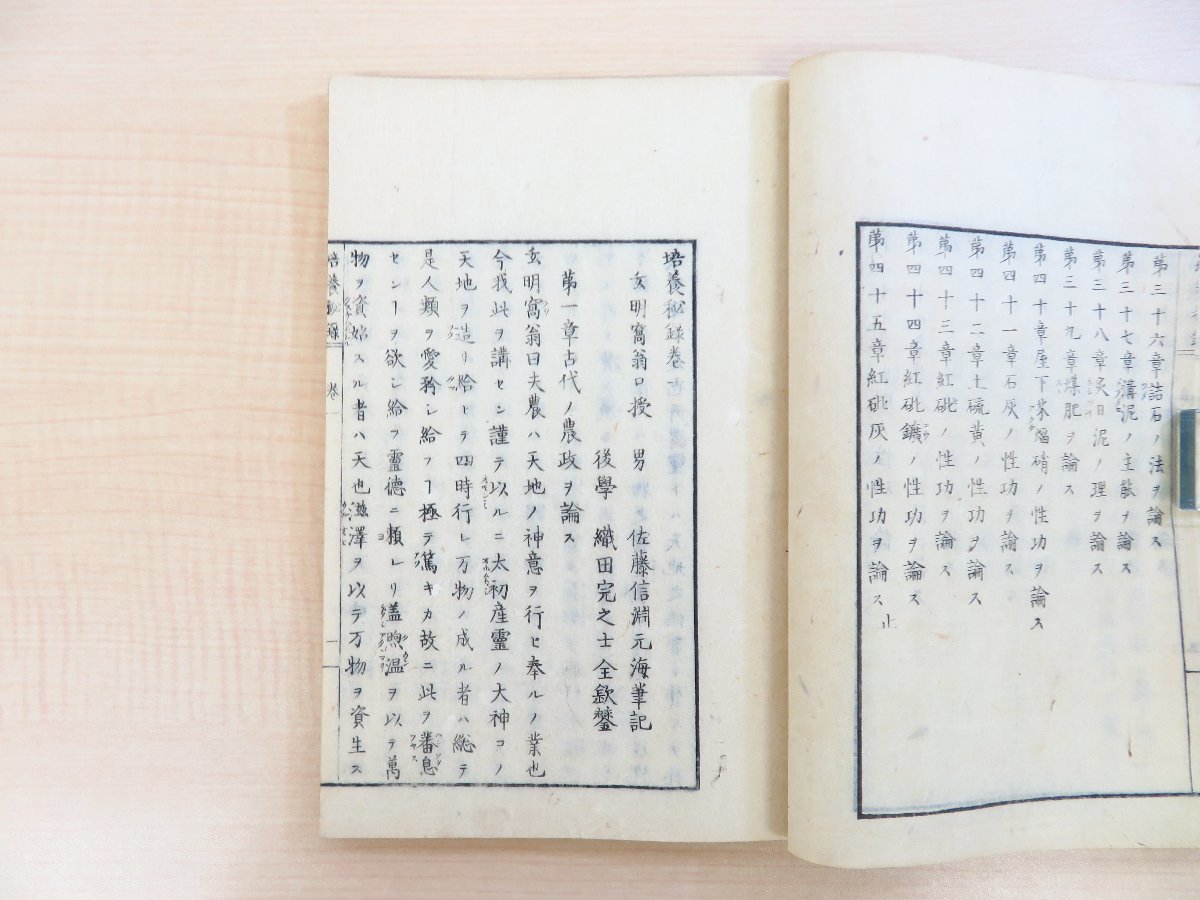 第三十六章詰石ノ法ヲ論ス
第三十七章溝泥ノ主能ヲ論ス
第三十八章炙日泥ノ理ヲ論ス
第三十九章煤肥ヲ論ス
第四十章屋下茶焔硝ノ性功ヲ論ス
第四十一章石灰ノ性功ヲ論ス
第四十二章土硫黄ノ性功ヲ論ス
第四十三章紅砒ノ性功ヲ論ス
第四十四章紅砒鑛ノ性功ヲ論ス
第四十五章紅砒灰ノ性功ヲ論ス 止
培養秘録巻
玄明窩翁口授 男 佐藤信淵元海筆記
後學 織田完之士全歘鐫
第一章古代ノ農政ヲ論ス
玄明窩翁曰夫農ハ天地ノ神意ヲ行ヒ奉ルノ業也
今我此ヲ講セン謹テ以ルニ太初産靈ノ大神コノ
天地ヲ造リ給ヒテ四時行レ万物ノ成ル者ハ総テ
是人類ヲ愛矜シ給フヿ極テ篤キカ故ニ此ヲ蕃息
センヿヲ欲シ給フ靈德ニ頼レリ盖煦温ヲ以テ萬
物ヲ資始スル者ハ天也滋澤ヲ以テ万物ヲ資生ス
培養秘録 巻一